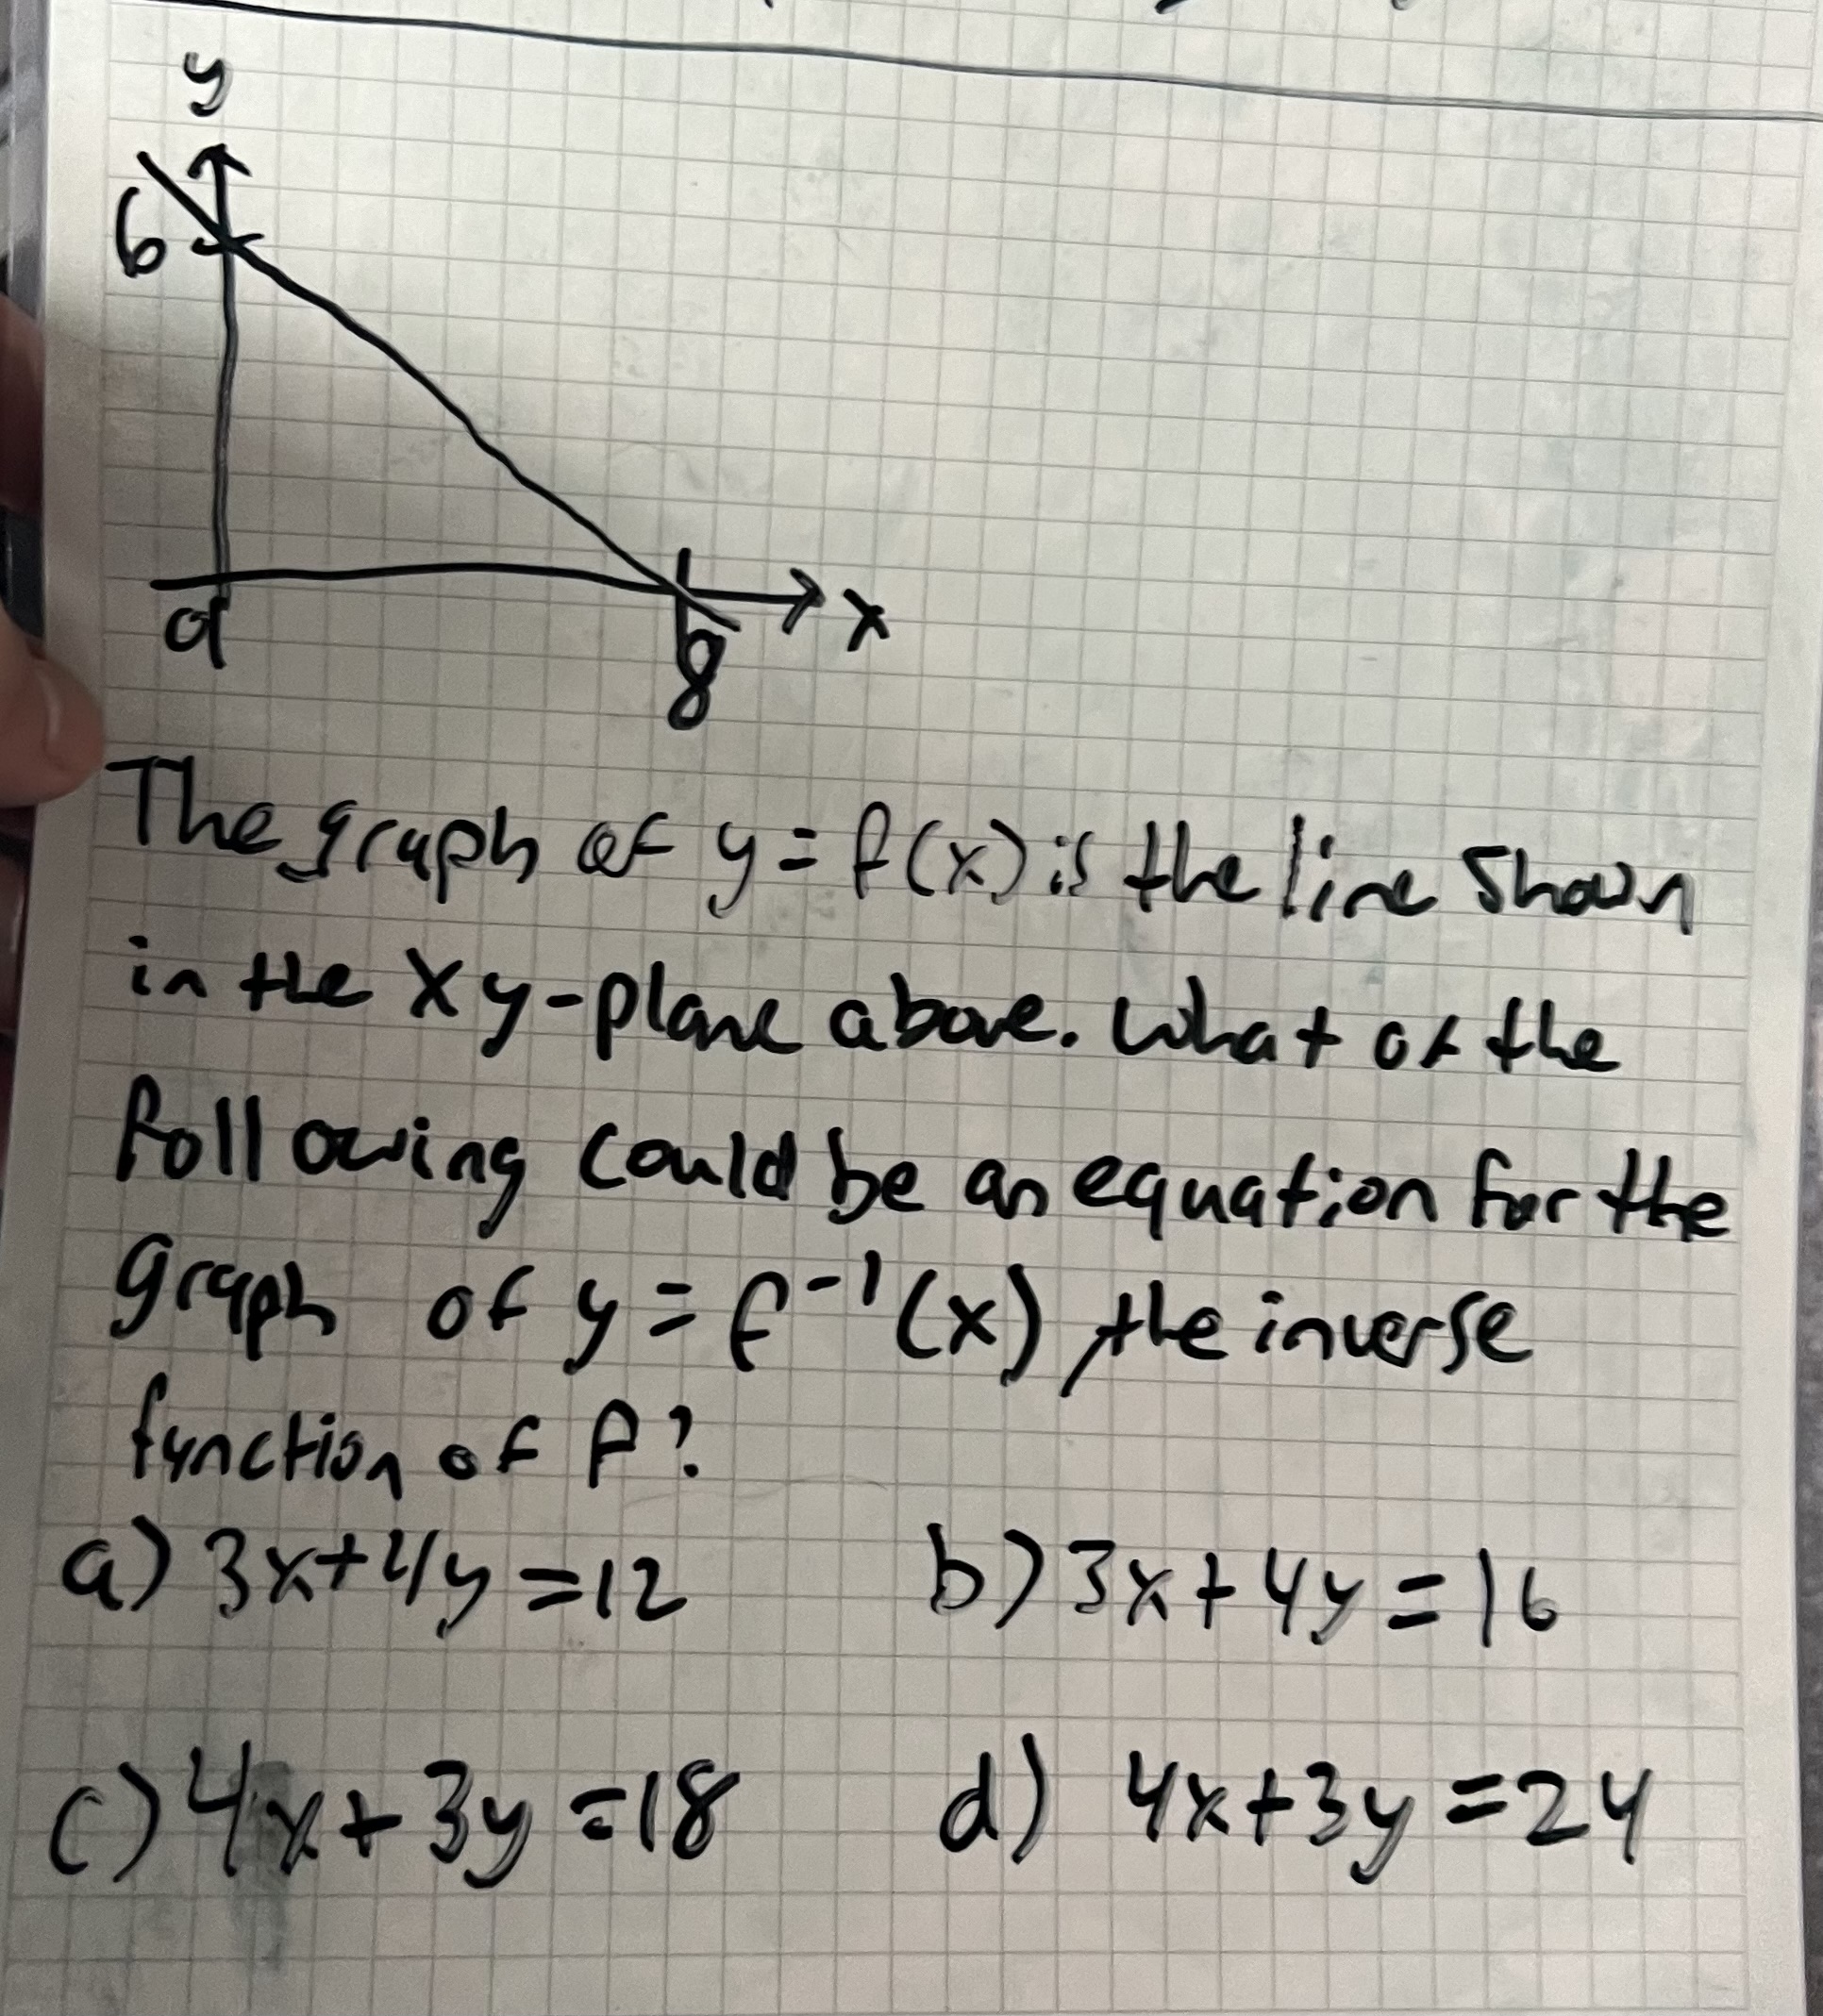 y
6
0
8
x
The graph of y = f(x) is the line shown
in the xy-plane above. What of the
following could be an equation for the
graph of y = f⁻¹(x), the inverse
function of f?
a) 3x+4y=12 b) 3x+4y=16
c) 4x+3y=18 d) 4x+3y=24